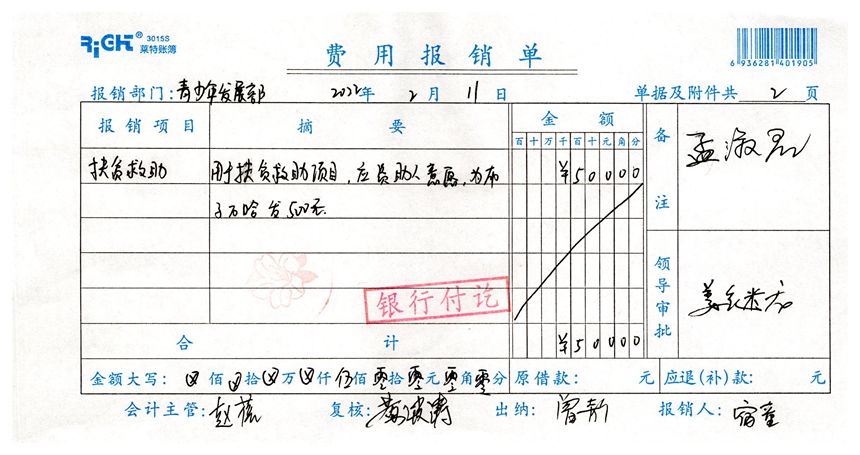 RiGHT® 3015S
莱特账簿
费用报销单
6 936281 401905
报销部门：青少年发展部 2022年 2月 11日 单据及附件共 2 页
报销项目 摘要 金额 备注
百十万千百十元角分
扶贫救助 用于扶贫救助项目，应员助人意愿，为布 ¥50000
子万哈发500元.
孟淑君
银行付讫
领导审批
合计 ¥50000
金额大写：⊗佰⊗拾⊗万⊗仟伍佰零拾零元零角零分 原借款： 元 应退（补）款： 元
会计主管： 复核： 出纳：曾新 报销人：宿童